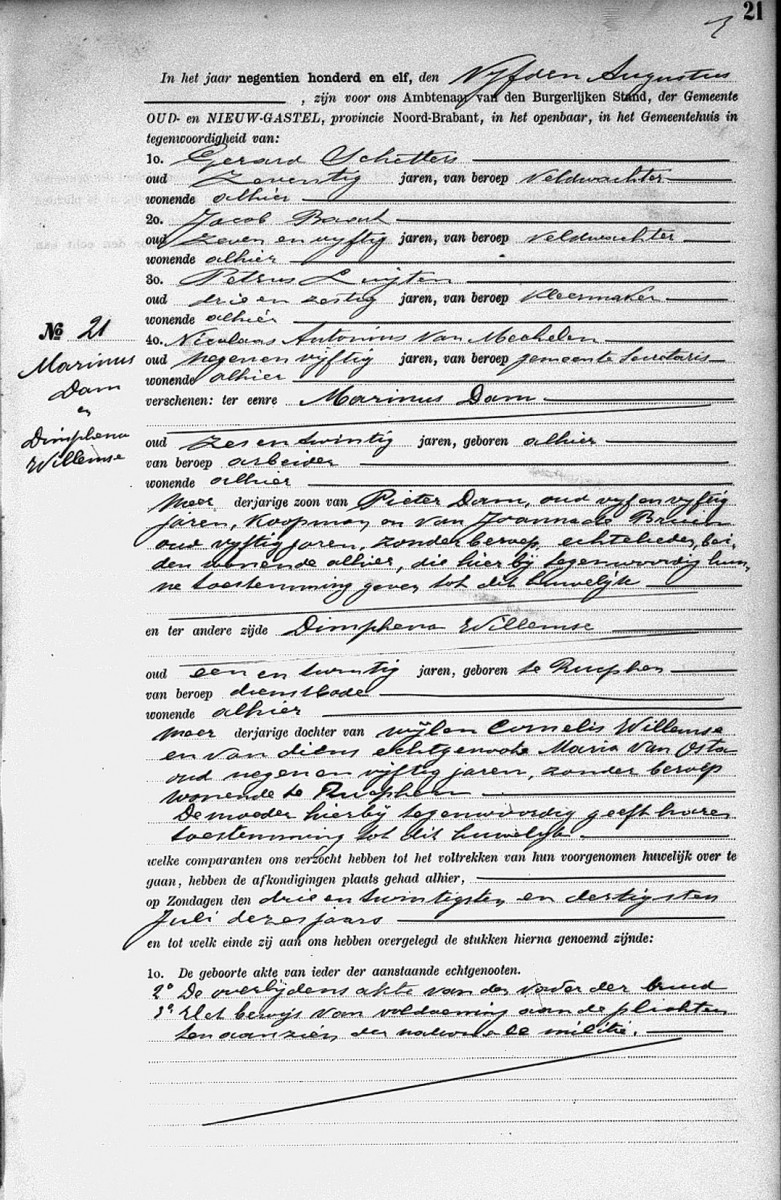 21
In het jaar negentien honderd en elf, den Vijfden Augustus
, zijn voor ons Ambtenaar van den Burgerlijken Stand, der Gemeente
OUD- en NIEUW-GASTEL, provincie Noord-Brabant, in het openbaar, in het Gemeentehuis in
tegenwoordigheid van:
1o. Gerard Schetters
oud Zeventig jaren, van beroep Veldwachter
wonende alhier
2o. Jacob
oud Zeven en vyftig jaren, van beroep Veldwachter
wonende alhier
3o. Petrus Luijten
oud drie en zestig jaren, van beroep Kleermaker
wonende alhier
4o. Nicolaas Antonius Van Mechelen
oud negen en vijftig jaren, van beroep gemeente Secretaris
wonende alhier
No 21
Marinus
Dam
en
Dimphena
Willemse
verschenen: ter eenre Marinus Dam
oud zes en twintig jaren, geboren alhier
van beroep arbeider
wonende alhier
meer derjarige zoon van Pieter Dam, oud vyf en vyftig
jaren, Koopman en van Joanna de Bruin
oud vyftig jaren, zonder beroep, echtelieden, bei-
den wonende alhier, die hier bij tegenwoordig hun-
ne toestemming geven tot dit huwelijk
en ter andere zijde Dimphena Willemse
oud een en twintig jaren, geboren te Rucphen
van beroep dienstbode
wonende alhier
meer derjarige dochter van wijlen Cornelis Willemse
en van diens echtgenoote Maria Van Osta
oud negen en vyftig jaren, zonder beroep
wonende te Rucphen
De moeder hierbij tegenwoordig geeft hare
toestemming tot dit huwelijk.
welke comparanten ons verzocht hebben tot het voltrekken van hun voorgenomen huwelijk over te
gaan, hebben de afkondigingen plaats gehad alhier,
op Zondagen den drie en twintigsten en dertigsten
Juli dezes jaars
en tot welk einde zij aan ons hebben overgelegd de stukken hierna genoemd zijnde:
1o. De geboorte akte van ieder der aanstaande echtgenooten.
2o De overlijdens akte van den vader der bruid
3o Het bewijs van voldoening aan de plichten
ten aanzien der nationale militie.